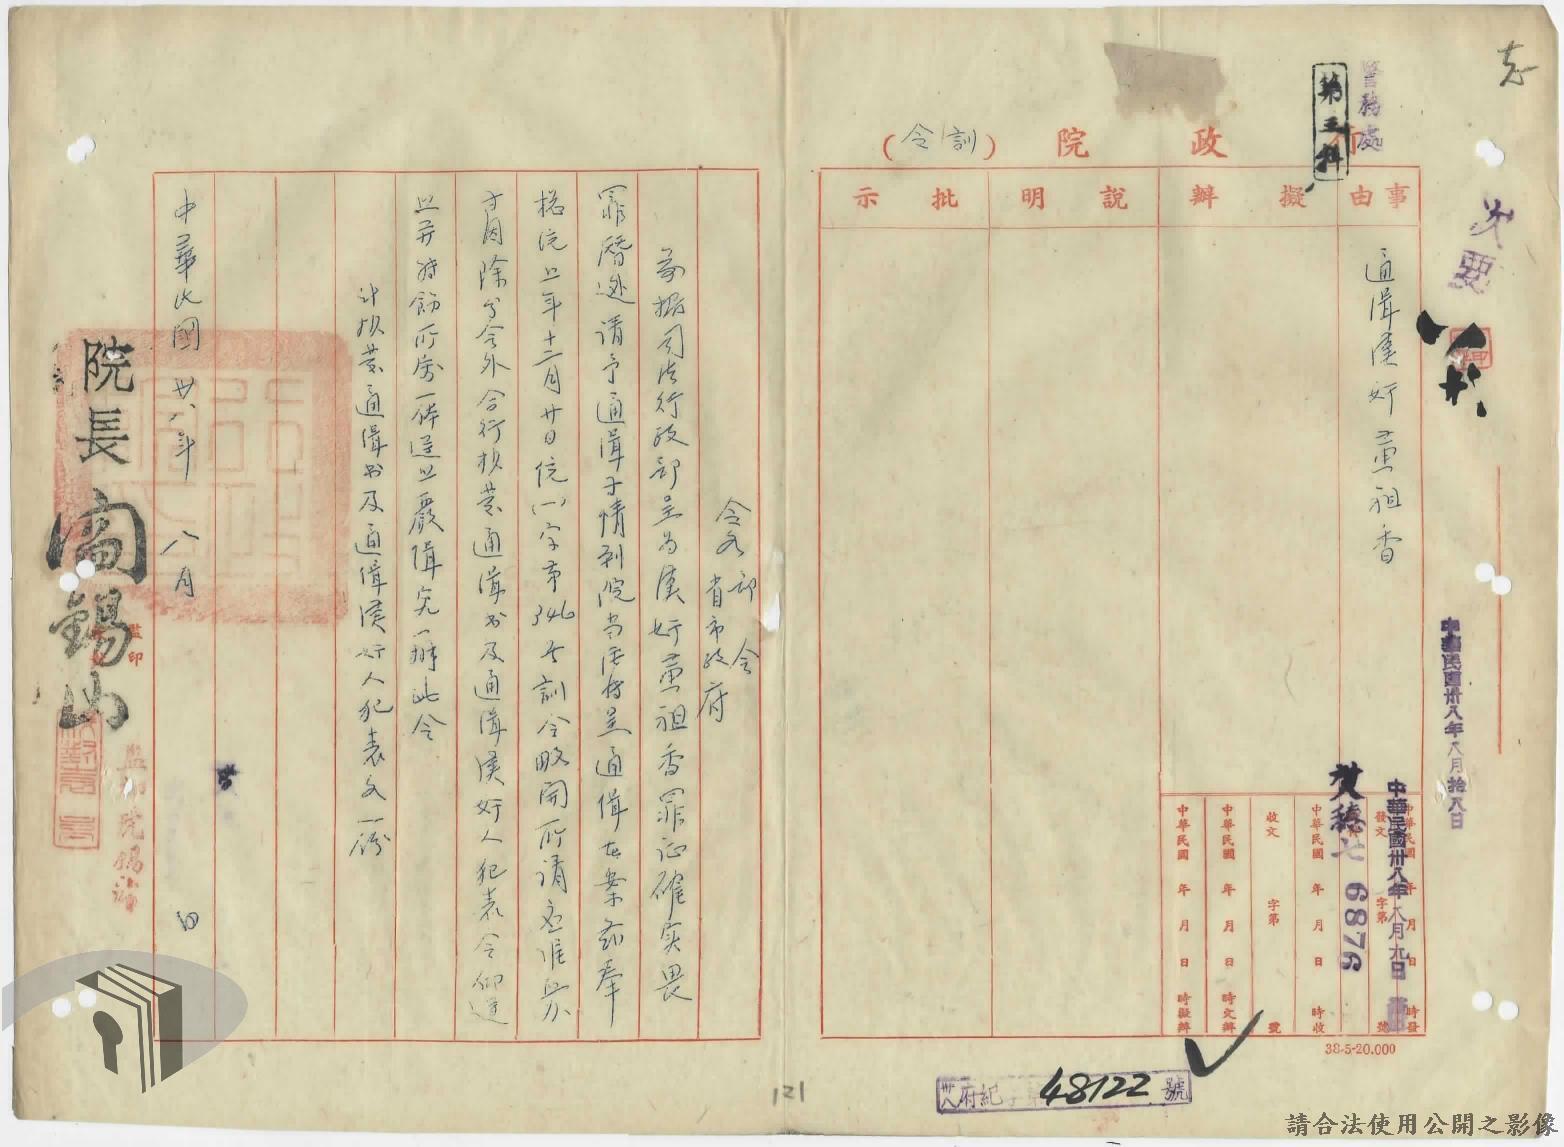 志
警務處
第三科
行政院(訓令)
事由
擬辦
說明
批示
次要
通緝漢奸黃祖香
中華民國卅八年八月拾八日
中華民國卅八年八月九日
貳穗七 6876
中華民國 年 月 日 時發
發文 字第 號
中華民國 年 月 日 時收
收文 字第 號
中華民國 年 月 日 時文辦
中華民國 年 月 日 時擬辦
38-5-20.000
卅八府紀字第48122號
令各部會
省市政府
案據司法行政部呈為漢奸黃祖香罪証確实畏
罪潛逃請予通緝等情到院當經轉呈通緝在案茲奉
總統上年十二月廿日統(一)字第346號訓令畧開所請應准照办
等因除分令外合行抄發通緝書及通緝漢奸人犯表令仰遵
照并轉飭所屬一体遵照嚴緝究辦此令
計抄發通緝書及通緝漢奸人犯表各一份
中華民國卅八年八月 日
院長閻錫山
監印
121
請合法使用公開之影像